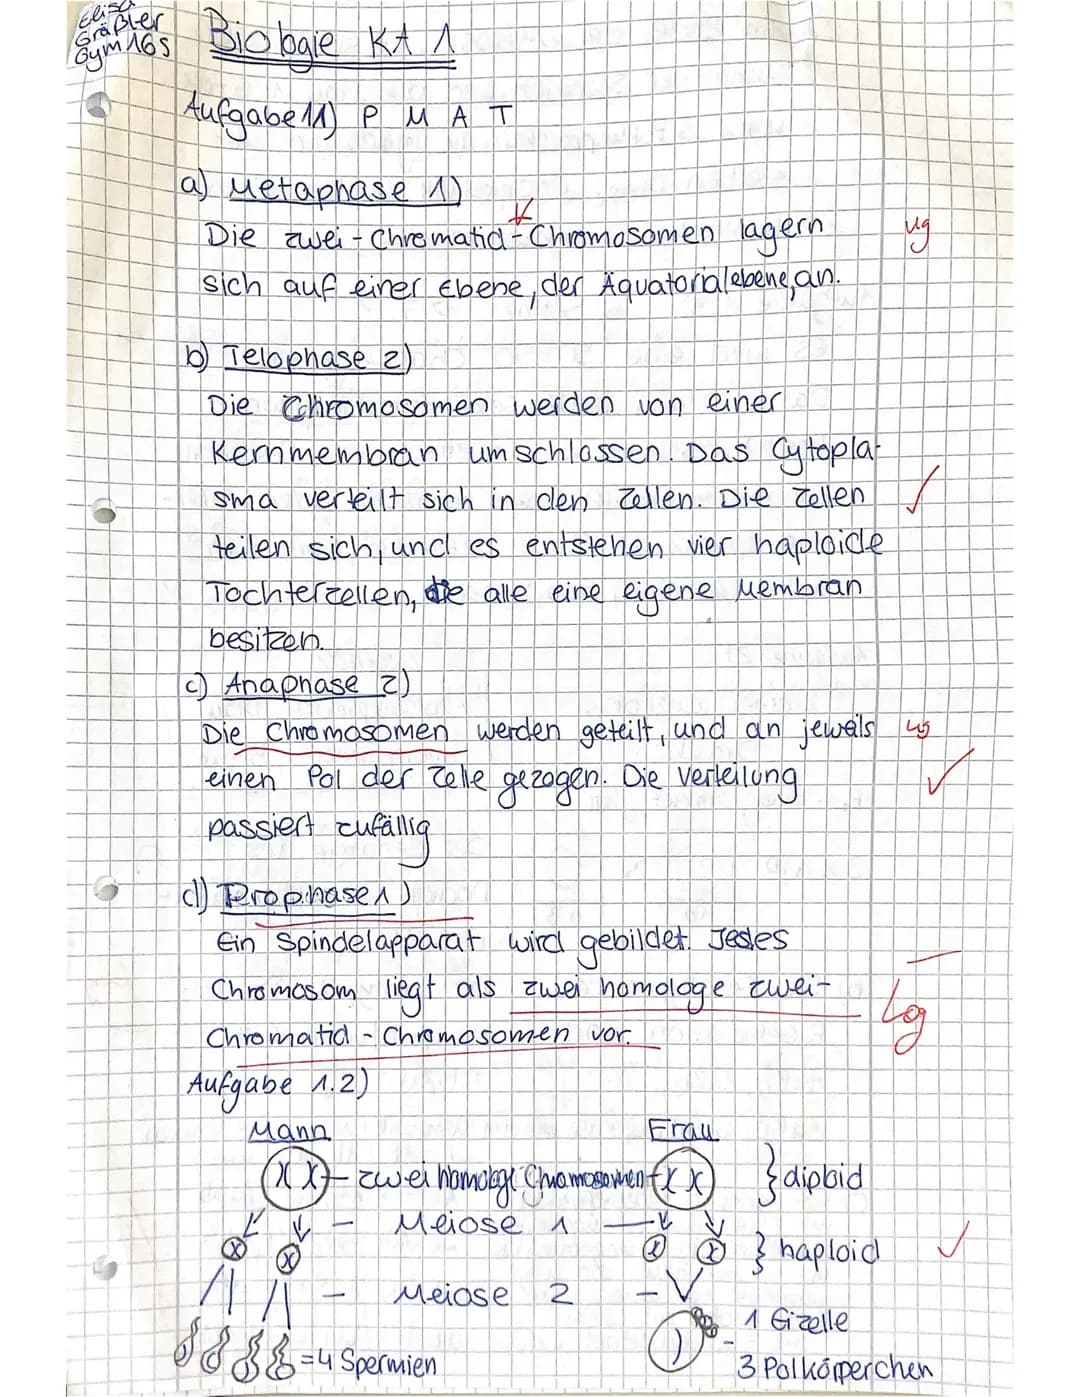 Elisa
Gräßler
Gym 16S
Biologie KA 1
Aufgabe 1 1) P M A T
a) Metaphase 1)
Die zwei-Chromatid-Chromosomen lagern ug
sich auf einer Ebene, der Äquatorialebene, an.
b) Telophase 2)
Die Chromosomen werden von einer
Kernmembran umschlossen. Das Cytopla-
sma verteilt sich in den Zellen. Die Zellen ✓
teilen sich, und es entstehen vier haploide
Tochterzellen, die alle eine eigene Membran
besitzen.
c) Anaphase 2)
Die Chromosomen werden geteilt, und an jeweils ug
einen Pol der Zelle gezogen. Die Verteilung ✓
passiert zufällig
d) Prophase 1)
Ein Spindelapparat wird gebildet. Jedes
Chromosom liegt als zwei homologe zwei-
Chromatid-Chromosomen vor.
Aufgabe 1.2)
Mann Frau
X X zwei homologe Chromosomen X X } diploid
Meiose 1
X X X X } haploid ✓
Meiose 2
1 Eizelle
= 4 Spermien
3 Polkörperchen